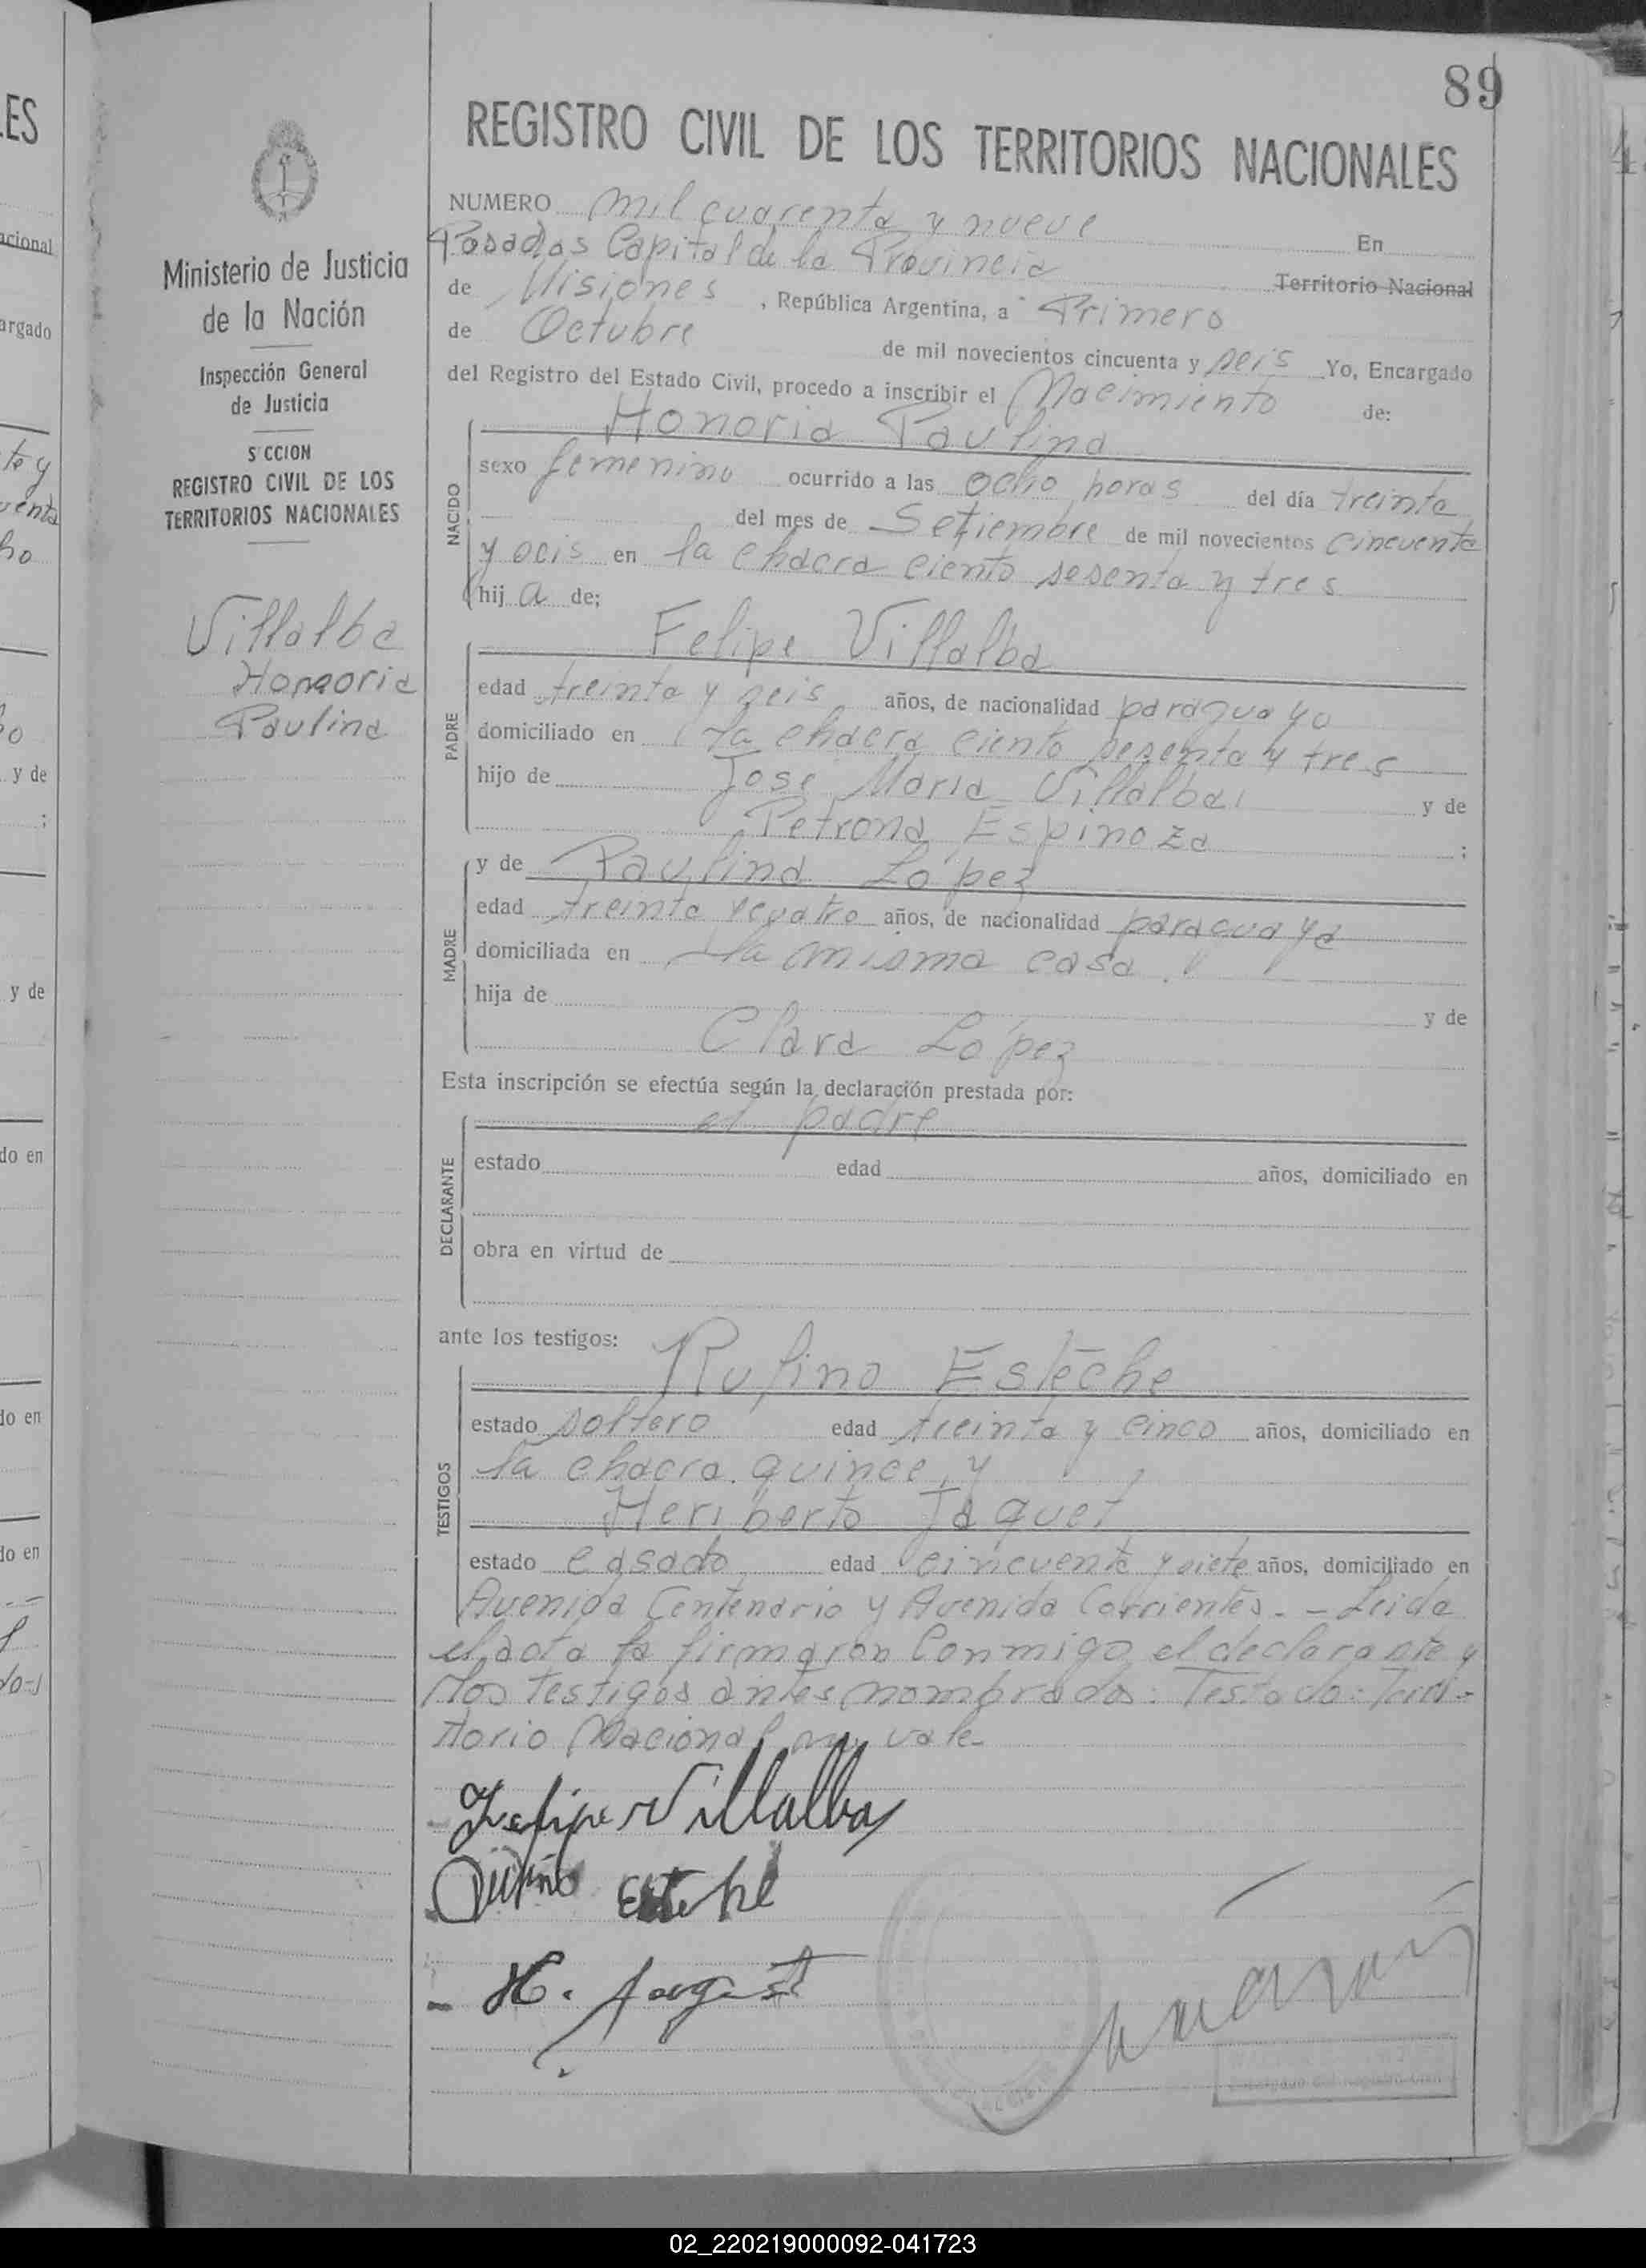 89
REGISTRO CIVIL DE LOS TERRITORIOS NACIONALES
Ministerio de Justicia
de la Nación
Inspección General
de Justicia
S CCION
REGISTRO CIVIL DE LOS
TERRITORIOS NACIONALES
Villalba
Honoria
Paulina
NUMERO mil cuarenta y nueve En
Posadas Capital de la Provincia Territorio Nacional
de Misiones, República Argentina, a Primero
de Octubre de mil novecientos cincuenta y seis Yo, Encargado
del Registro del Estado Civil, procedo a inscribir el Nacimiento de:
NACIDO
Honoria Paulina
sexo femenino ocurrido a las ocho horas del día treinta
del mes de Setiembre de mil novecientos cincuenta
y seis en la chacra ciento sesenta y tres
hij a de;
PADRE
Felipe Villalba
edad treinta y seis años, de nacionalidad paraguayo
domiciliado en la chacra ciento sesenta y tres
hijo de José María Villalba y de
Petrona Espinoza ;
MADRE
y de Paulina López
edad treinta y cuatro años, de nacionalidad paraguaya
domiciliada en la misma casa
hija de y de
Clara López
Esta inscripción se efectúa según la declaración prestada por:
DECLARANTE
el padre
estado edad años, domiciliado en
obra en virtud de
ante los testigos:
TESTIGOS
Rufino Esteche
estado soltero edad treinta y cinco años, domiciliado en
la chacra quince, y
Heriberto Jaquet
estado casado edad cincuenta y siete años, domiciliado en
Avenida Centenario y Avenida Corrientes. - Leida
el acta la firmaron conmigo el declarante y
los testigos antes nombrados: Testado: Terri-
torio Nacional no vale
Felipe Villalba
Rufino Esteche
H. Jaquet
02_220219000092-041723